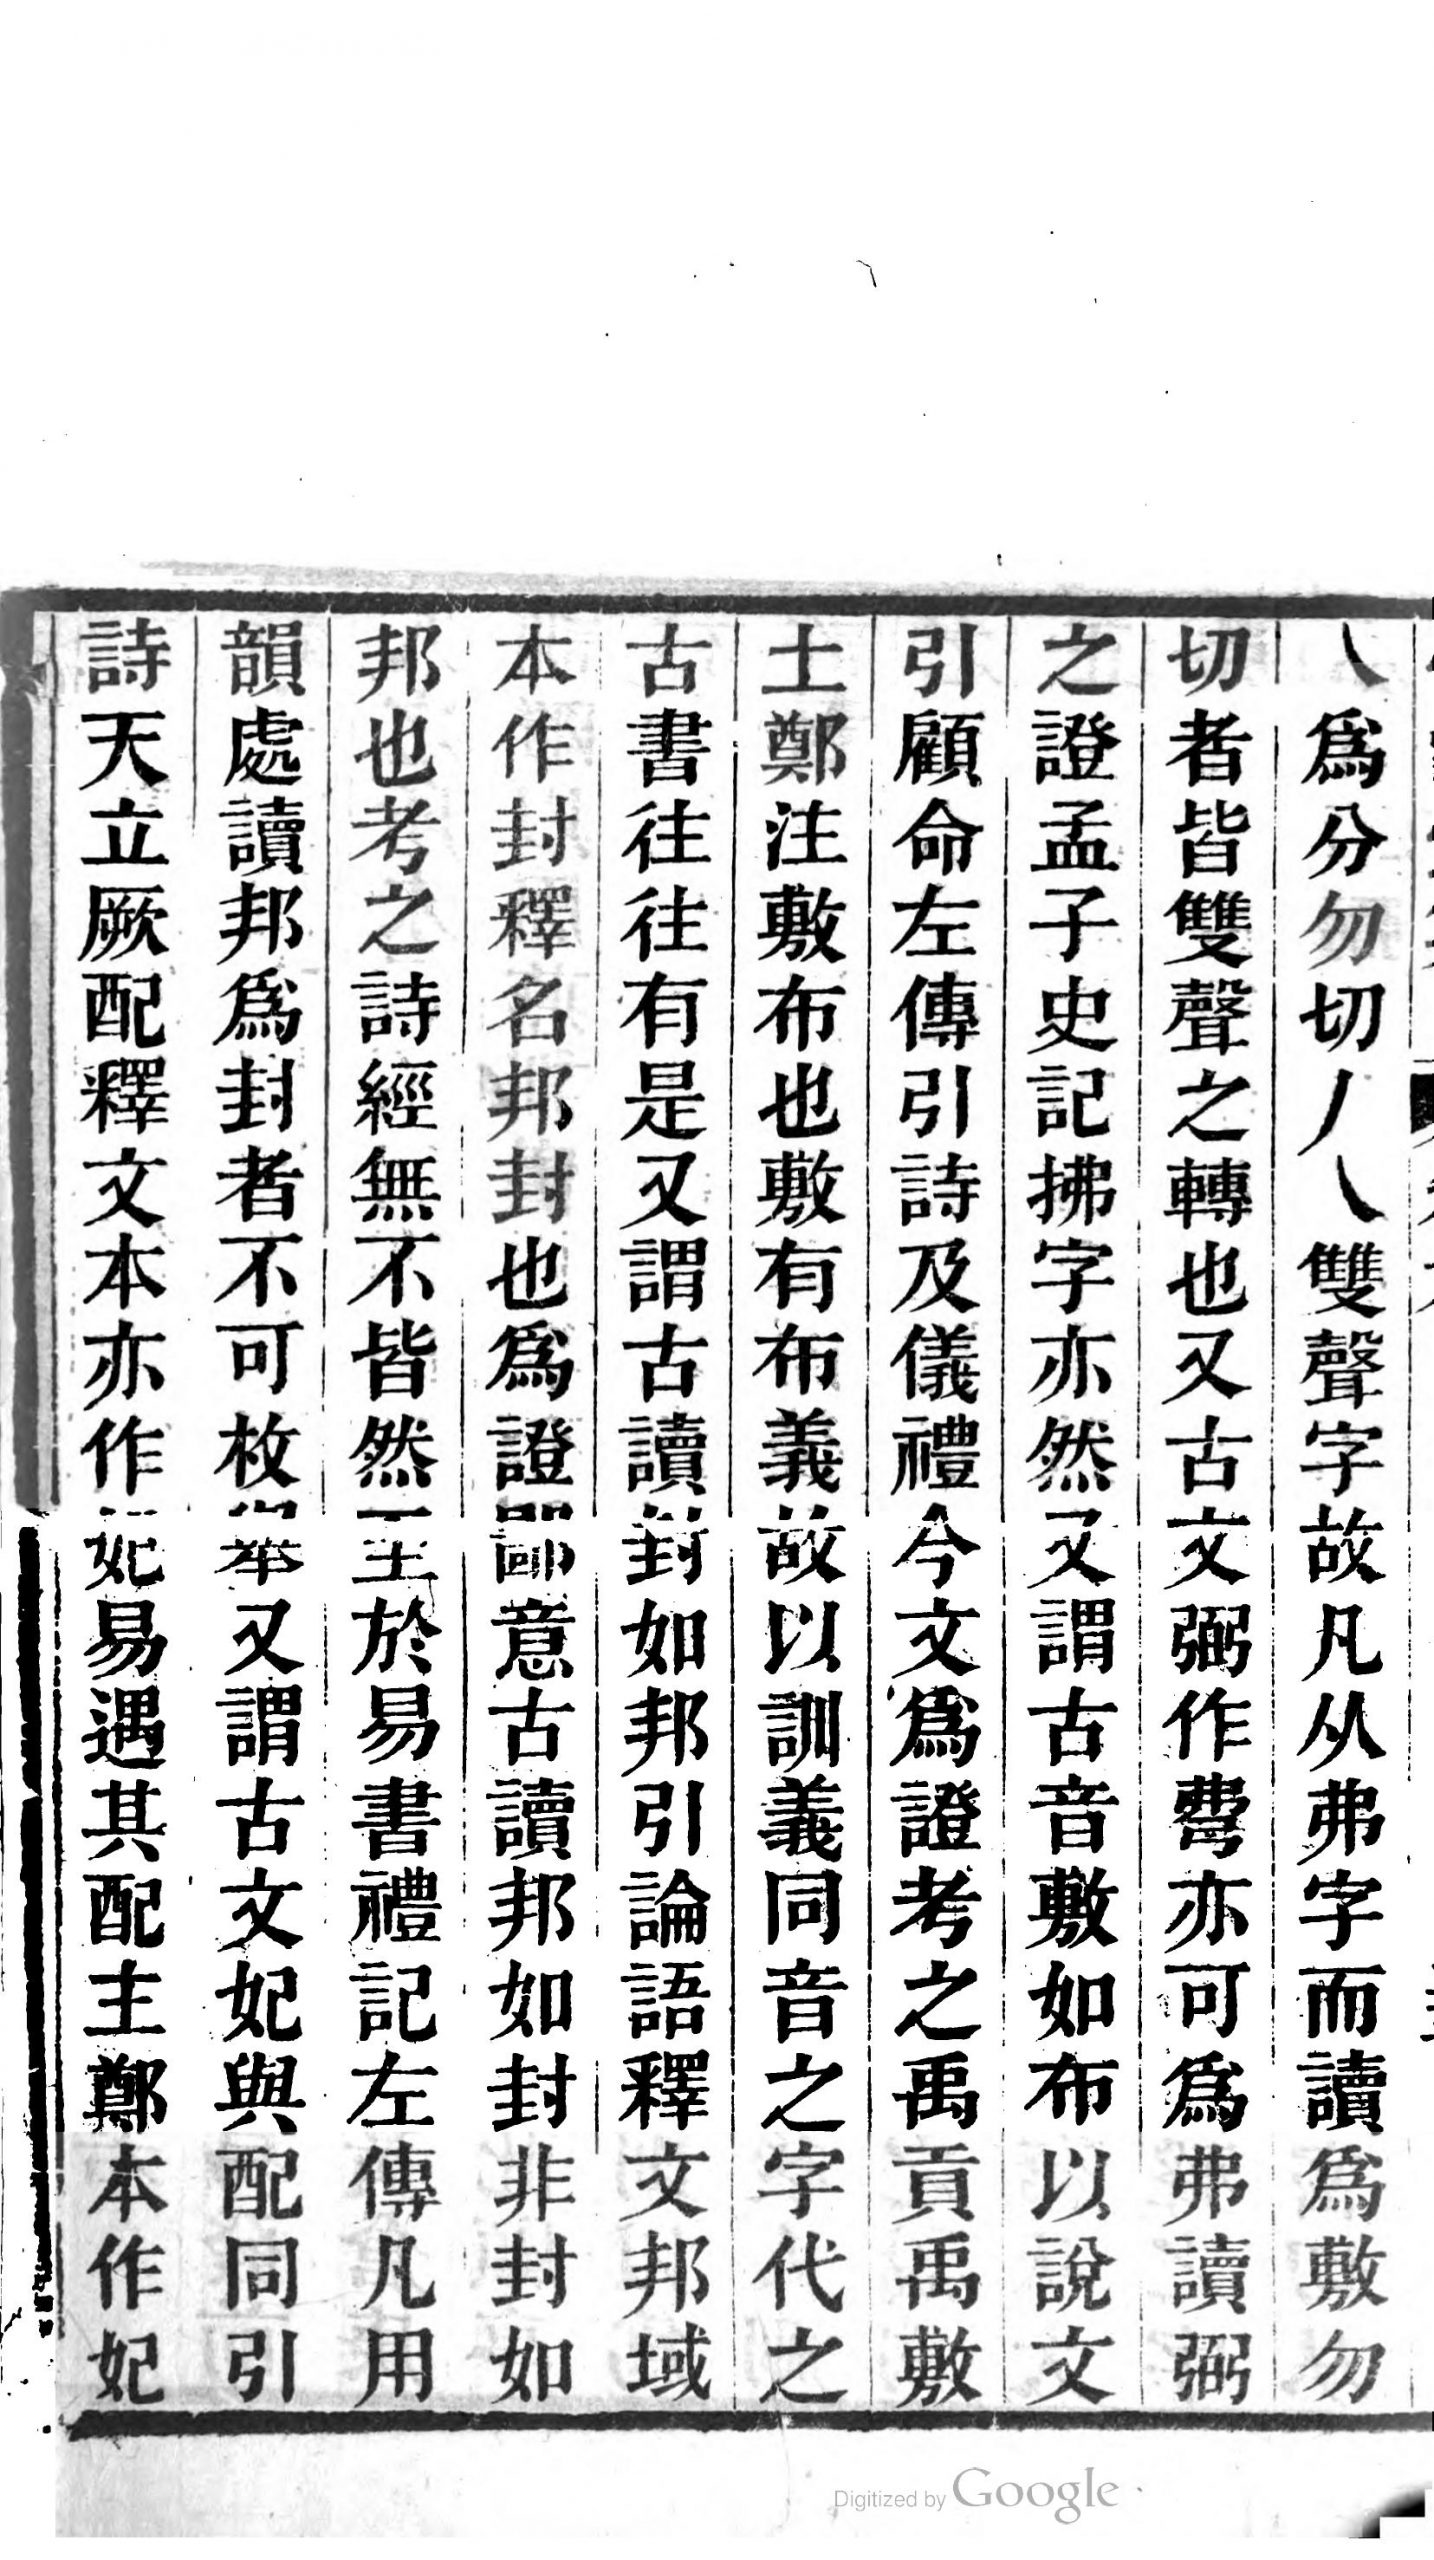 乀爲分勿切丿乀雙聲字故凡从弗字而讀爲敷勿
切者皆雙聲之轉也又古文弼作㢸亦可爲弗讀弼
之證孟子史記拂字亦然又謂古音敷如布以說文
引顧命左傳引詩及儀禮今文爲證考之禹貢禹敷
土鄭注敷布也敷有布義故以訓義同音之字代之
古書往往有是又謂古讀封如邦引論語釋文邦域
本作封釋名邦封也爲證鄙意古讀邦如封非封如
邦也考之詩經無不皆然至於易書禮記左傳凡用
韻處讀邦爲封者不可枚舉又謂古文妃與配同引
詩天立厥配釋文本亦作妃易遇其配主鄭本作妃
Digitized by Google